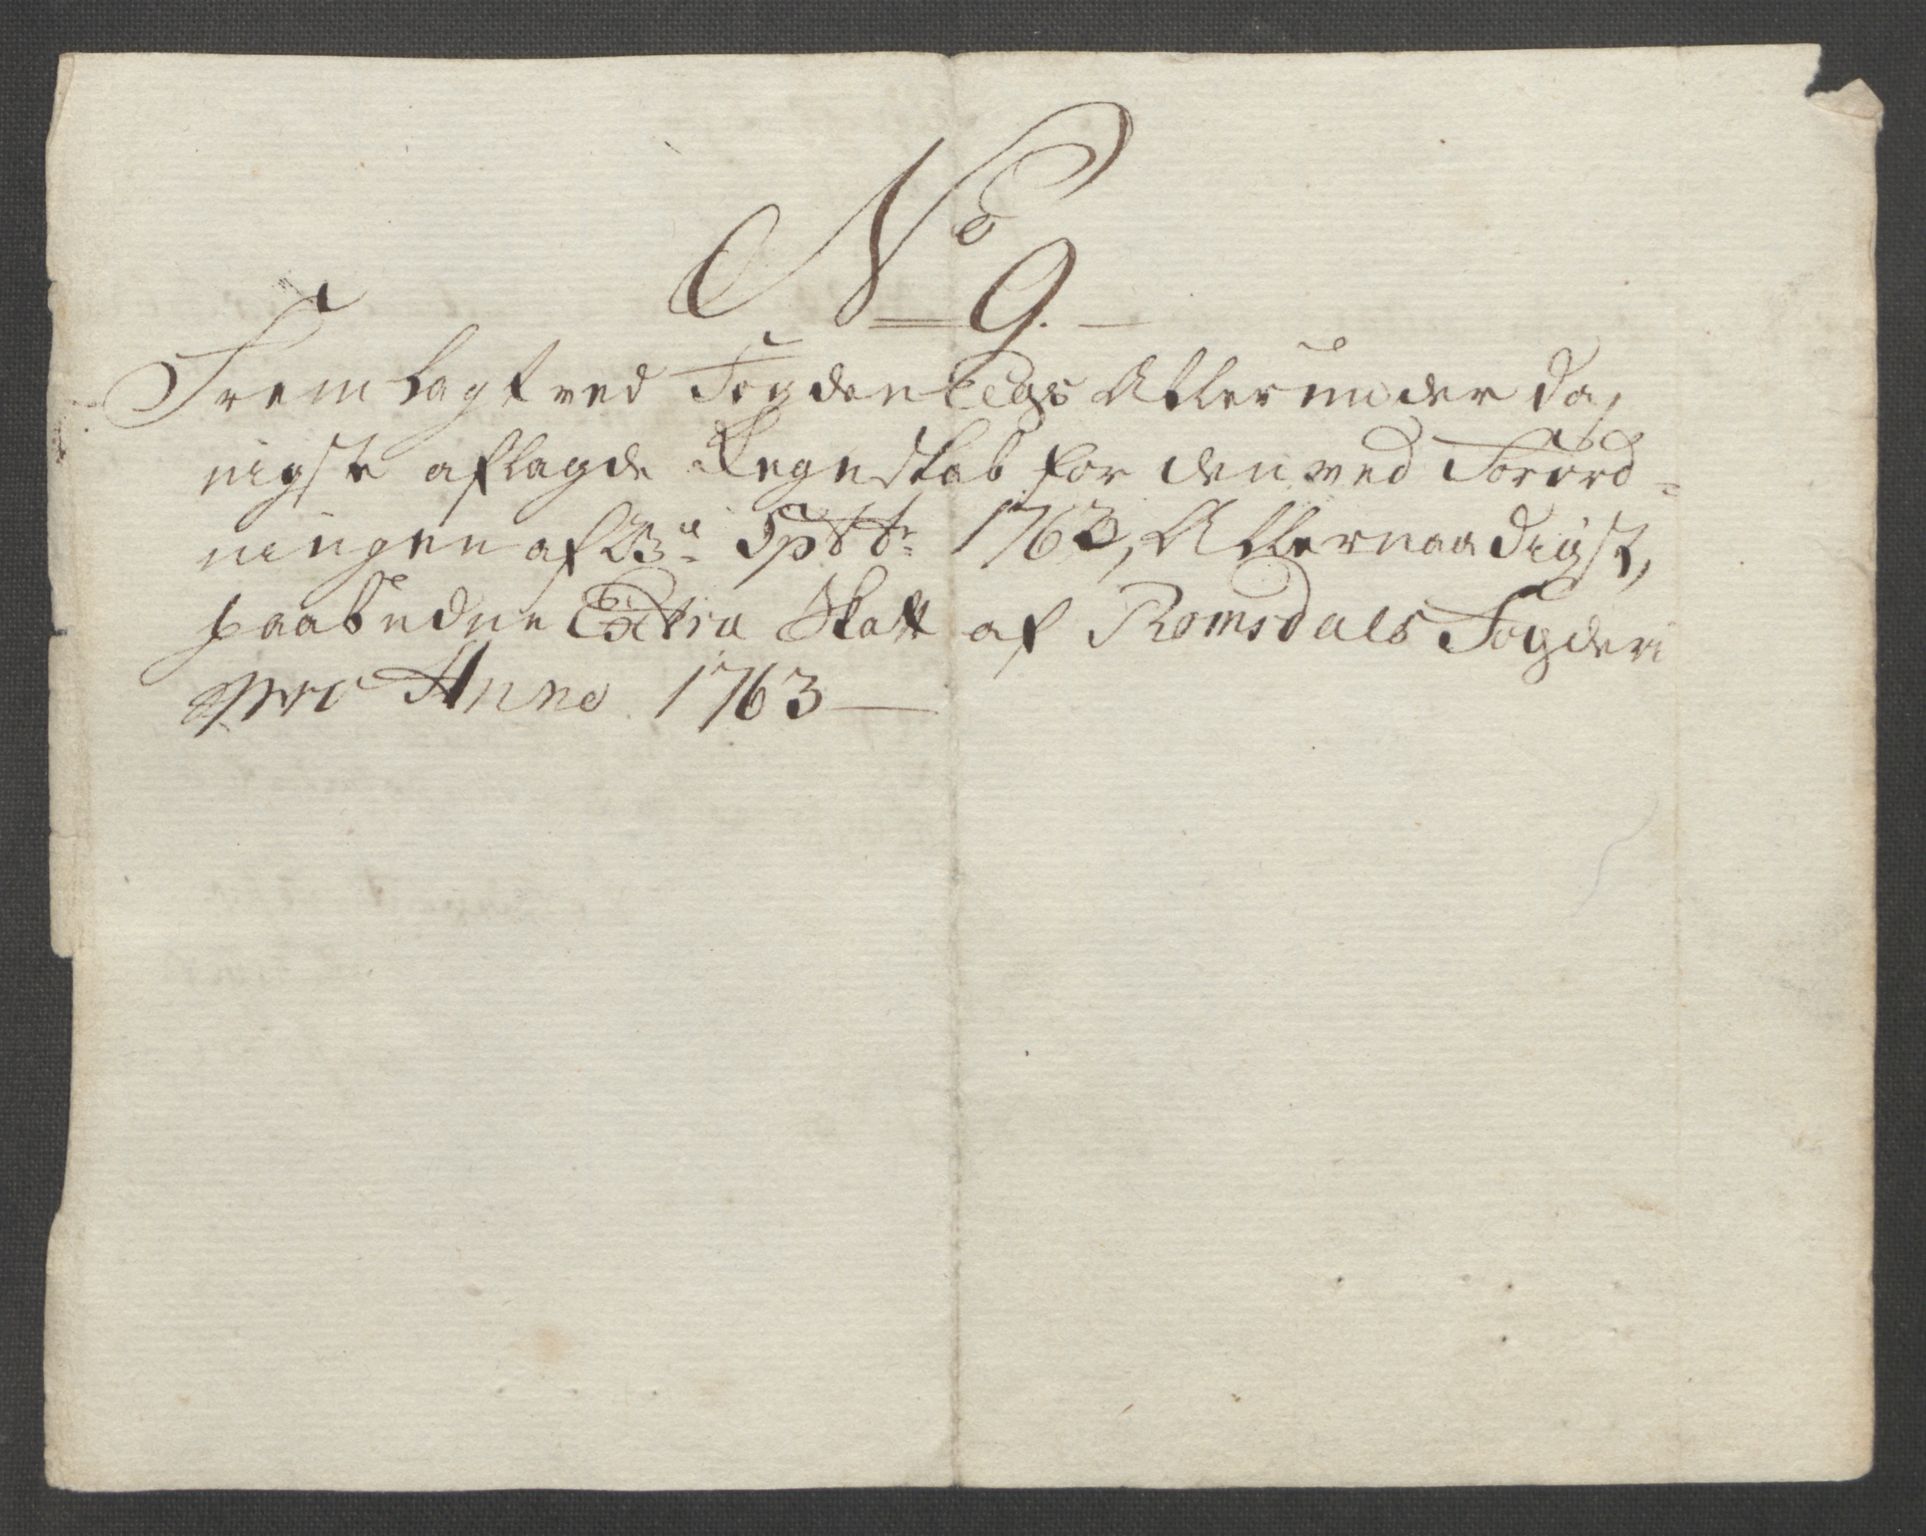 No 9.
Fremlagt ved Fogden Eegs Allerunderda,
nigste aflagde Regnskab for den ved Forord-
ningen af 23de Sptbr: 1762, Allernaadigst,
paabudne Extra Skatt af Romsdals Fogderi
pro Anno 1763